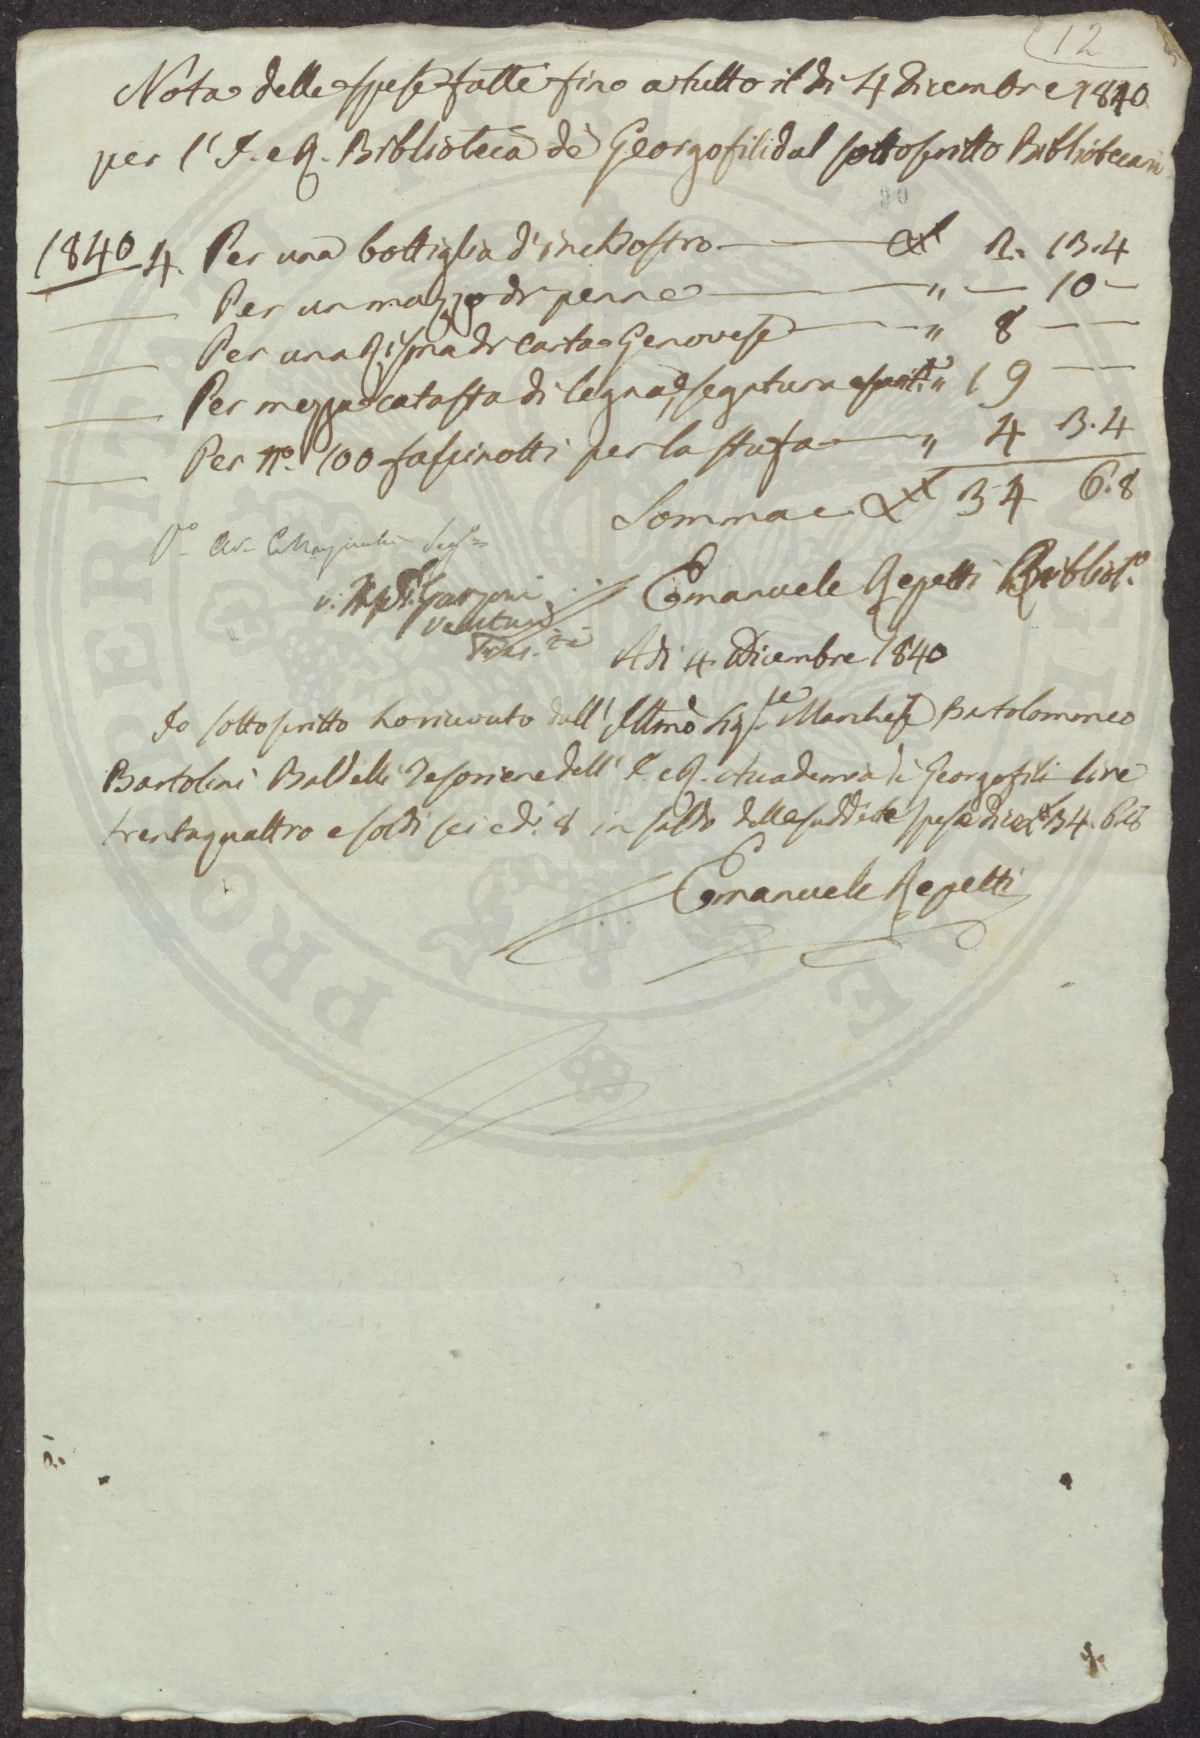 12
Nota delle spese fatte fino a tutto il dì 4 Dicembre 1840
per l'I. e R. Biblioteca de' Georgofili dal sottoscritto Bibliotecario
20
1840 4. Per una bottiglia d'inchiostro £ 2. 13.4
Per un mazzo di penne " — 10 —
Per una Risma di carta Genovese " 8 — —
Per mezza catasta di legna, segatura " 19 — —
Per No. 100 fascinotti per la stufa " 4 3.4
Somma £ 34 6.8
Emanuele Repetti Bibliot.o
Garzoni
Venturi
A dì 4 Dicembre 1840
Io sottoscritto ho ricevuto dall' Illmo Sig.re Marchese Bartolommeo
Bartolini Baldelli Tesoriere dell' I. e R. Accademia de' Georgofili lire
trentaquattro e soldi sei e d. 8 in saldo delle suddette spese dico £ 34. 6.8
Emanuele Repetti
PROPRIETATE